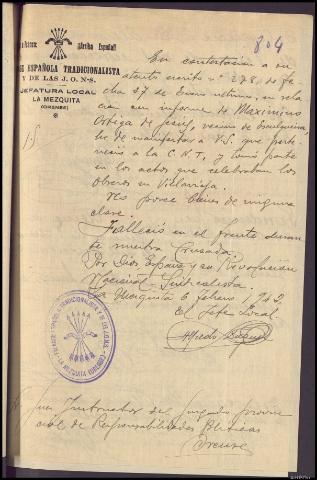 ¡Arriba España!
804
ESPAÑOLA TRADICIONALISTA
Y DE LAS J. O. N-S.
JEFATURA LOCAL
LA MEZQUITA
(ORENSE)
En contestación a su
atento escrito nº 278 de fe
cha 27 de Enero último, en rela
ción con informe de Maximino
Ortiga de Jesús, vecino de
he de manifestar a V.S. que perte
neció a la C.N.T, y tomó parte
en los actos que celebraban los
obreros en Villavieja.
No posee bienes de ninguna
clase.
Falleció en el frente duran
te nuestra Cruzada.
Por Dios España y su Revolución
Nacional-Sindicalista.
La Mezquita 6 febrero 1942
El Jefe Local.
Alfredo
FALANGE ESPAÑOLA TRADICIONALISTA Y DE LAS J.O.N.S.
LA MEZQUITA (ORENSE)
Juez Instructor del Juzgado provin
cial de Responsabilidades Políticas
Orense